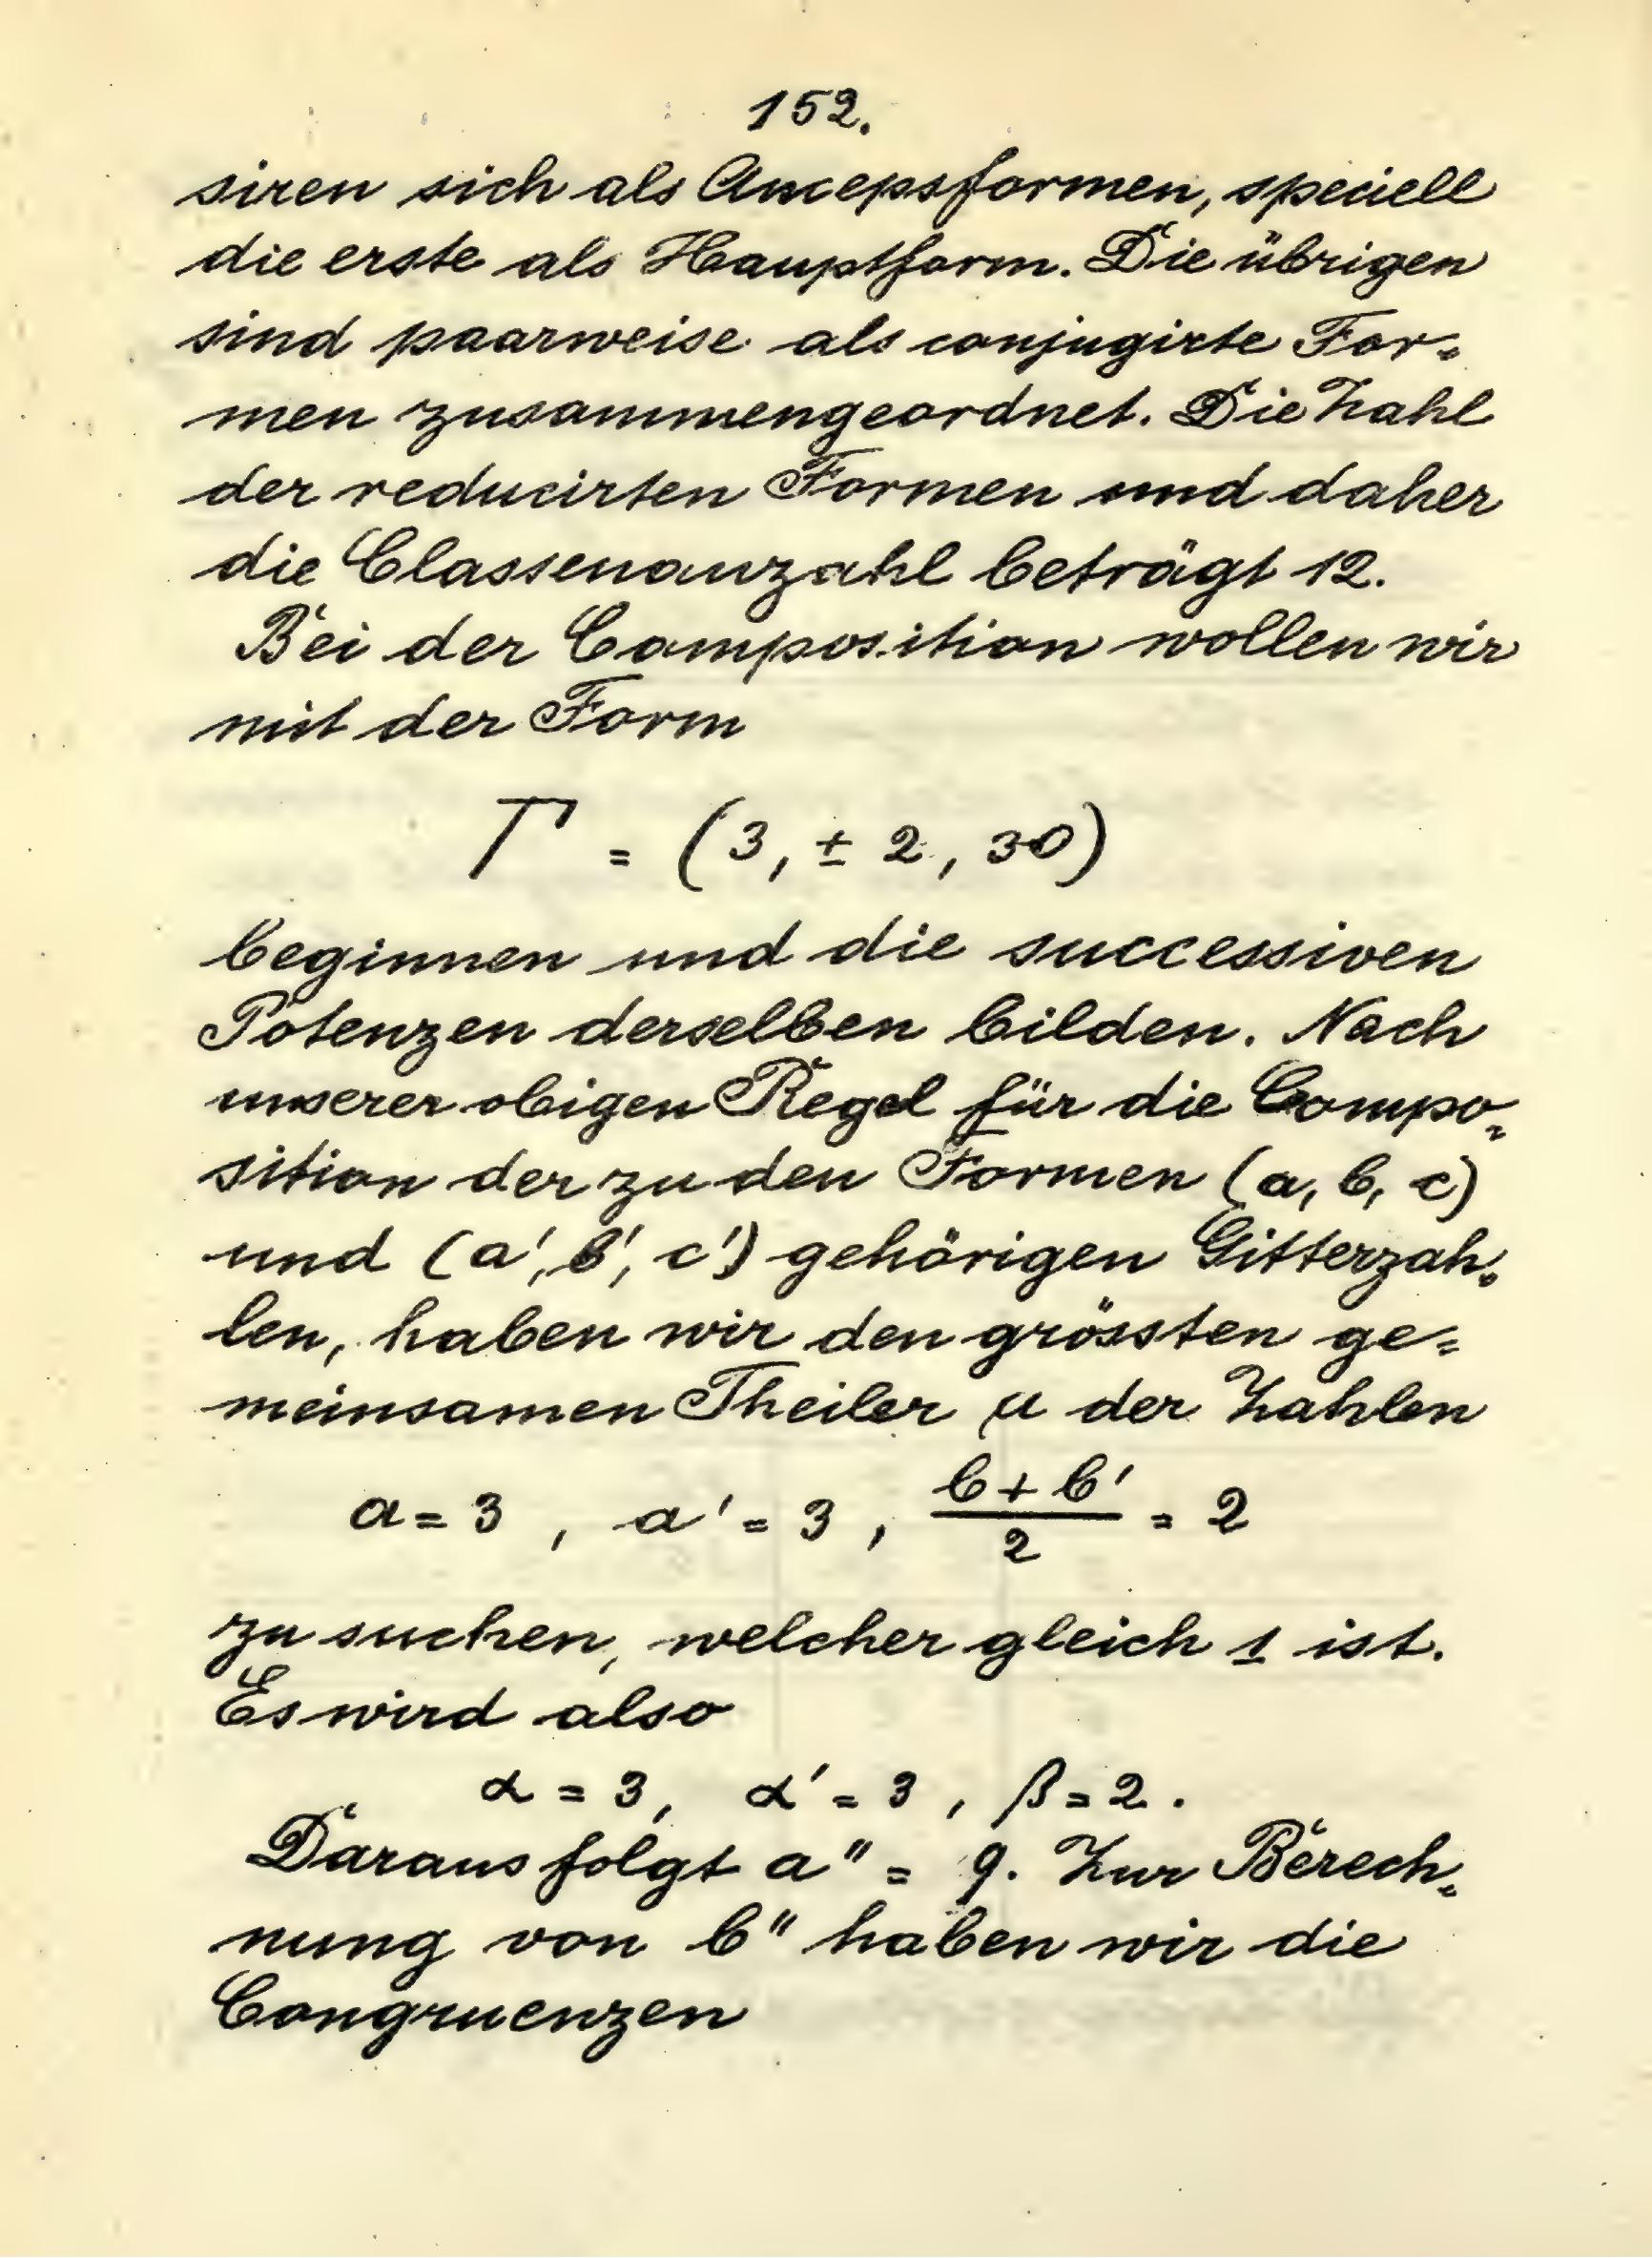 152.
siren sich als Ancepsformen, speciell
die erste als Hauptform. Die übrigen
sind paarweise als conjugirte For-
men zusammengeordnet. Die Zahl
der reducirten Formen und daher
die Classenanzahl beträgt 12.
Bei der Composition wollen wir
mit der Form
Γ = (3, ± 2, 30)
beginnen und die successiven
Potenzen derselben bilden. Nach
unserer obigen Regel für die Compo-
sition der zu den Formen (a, b, c)
und (a', b', c') gehörigen Gitterzah-
len, haben wir den grössten ge-
meinsamen Theiler μ der Zahlen
a = 3 , a' = 3 , (b + b')/2 = 2
zu suchen, welcher gleich 1 ist.
Es wird also
α = 3, α' = 3 , β = 2 .
Daraus folgt a" = 9. Zur Berech-
nung von b" haben wir die
Congruenzen